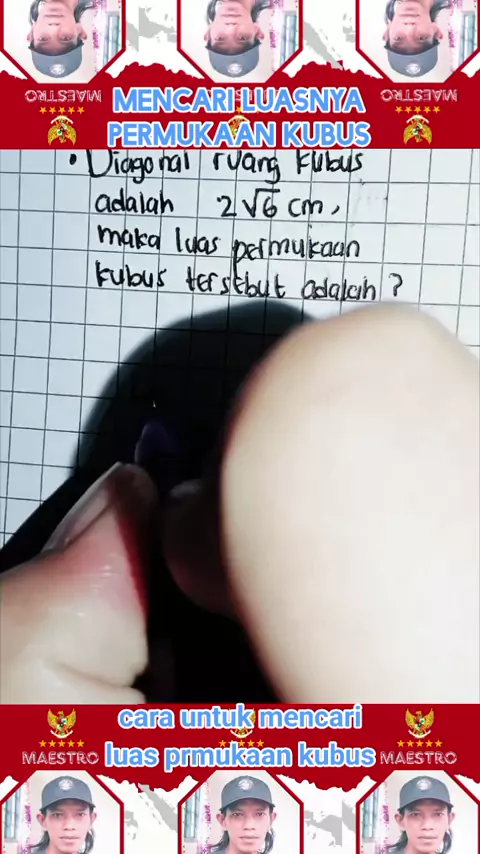 MAESTRO
MAESTRO
MENCARI LUASNYA
PERMUKAAN KUBUS
• Diagonal ruang kubus
adalah 2√6 cm,
maka luas permukaan
kubus tersebut adalah ?
cara untuk mencari
luas prmukaan kubus
MAESTRO
MAESTRO